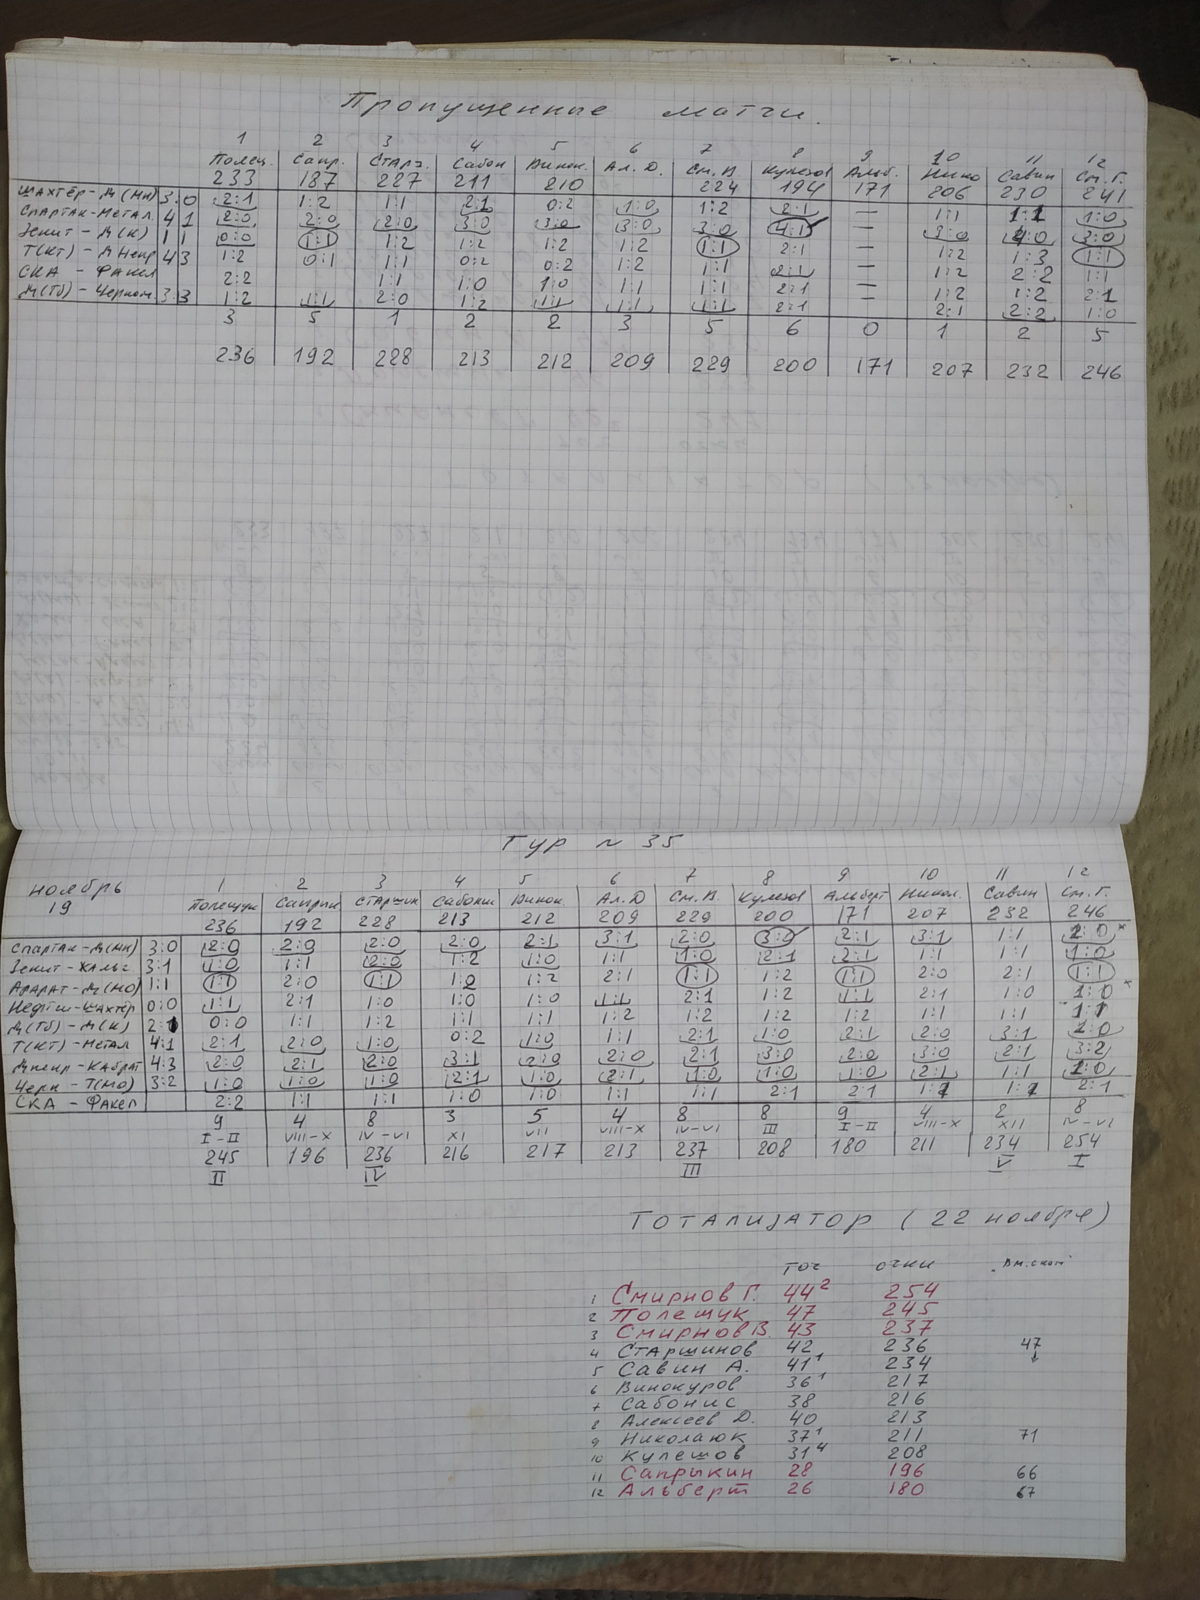 Пропущенные матчи.
1 2 3 4 5 6 7 8 9 10 11 12
Полещ. Сапр. Старш. Сабон Винок. Ал. Д. См. В Кулешов Альб. Нико Савин См. Г.
233 187 227 211 210 224 194 171 206 230 241
Шахтёр-Д(Мн) 3:0 2:1 1:2 1:1 2:1 0:2 1:0 1:2 2:1 — 1:1 1:1 1:0
Спартак-Метал. 4 1 2:0 2:0 2:0 3:0 3:0 3:0 3:0 4:1 — 3:0 4:0 3:0
Зенит-Д(К) 1 1 0:0 1:1 1:2 1:2 1:2 1:2 1:1 2:1 — 1:2 1:3 1:1
Т(Кт)-Днепр 4 3 1:2 0:1 1:1 0:2 0:2 1:2 1:1 2:1 — 1:2 2:2 1:1
СКА - Факел 2:2 1:1 1:0 1:0 1:1 1:1 2:1 — 1:2 1:2 2:1
Д(Тб)-Черном 3:3 1:2 1:1 2:0 1:2 1:1 1:1 1:1 2:1 2:1 2:2 1:0
3 5 1 2 2 3 5 6 0 1 2 5
236 192 228 213 212 209 229 200 171 207 232 246
Тур № 35
ноябрь 1 2 3 4 5 6 7 8 9 10 11 12
19 Полещук Саприн Старшин Сабонис Винок. Ал. Д См. В Кулешов Альберт Никол. Савин См. Г.
236 192 228 213 212 209 229 200 171 207 232 246
Спартак-Д(Мн) 3:0 2:0 2:0 2:0 2:0 2:1 3:1 2:0 3:0 2:1 3:1 1:1 2:0 ×
Зенит-Кайрат 3:1 4:0 1:1 2:0 1:2 1:0 1:1 1:0 2:1 2:1 1:1 1:1 1:0
Арарат-Д(Мо) 1:1 1:1 2:0 1:1 1:0 1:2 2:1 1:1 1:2 1:1 2:0 2:1 1:1
Нефтчи-Шахтёр 0:0 1:1 2:1 1:0 1:0 1:0 1:1 2:1 1:2 1:1 2:1 1:0 1:0 ×
Д(Тб)-Д(К) 2:1 0:0 1:1 1:2 1:1 1:1 1:2 1:2 1:2 1:2 1:1 1:1 1:1
Т(Кт)-Метал 4:1 2:1 2:0 1:0 0:2 1:0 1:1 2:1 1:0 2:1 2:0 3:1 2:0
Днепр-Кайрат 4:3 2:0 2:1 2:0 3:1 2:0 2:0 2:1 3:0 2:0 3:0 2:1 3:2
Черн-Т(Мо) 3:2 1:0 1:0 1:0 2:1 1:0 2:1 1:0 1:0 1:0 2:1 1:1 2:0
СКА - Факел 2:2 1:1 1:1 1:0 1:0 1:1 1:1 2:1 2:1 1:2 1:2 2:1
9 4 8 3 5 4 8 8 9 4 2 8
I-II VIII-X IV-VI XI VII VIII-X IV-VI III I-II VIII-X XII IV-VI
245 196 236 216 217 213 237 208 180 211 234 254
II IV III V I
Тотализатор (22 ноября)
точ очки
1 Смирнов Г. 44² 254
2 Полещук 47 245
3 Смирнов В. 43 237
4 Старшинов 42 236 47
5 Савин А. 41¹ 234 ↓
6 Винокуров 36¹ 217
7 Сабонис 38 216
8 Алексеев Д. 40 213
9 Николаюк 37¹ 211 71
10 Кулешов 31⁴ 208
11 Сапрыкин 28 196 66
12 Альберт 26 180 67